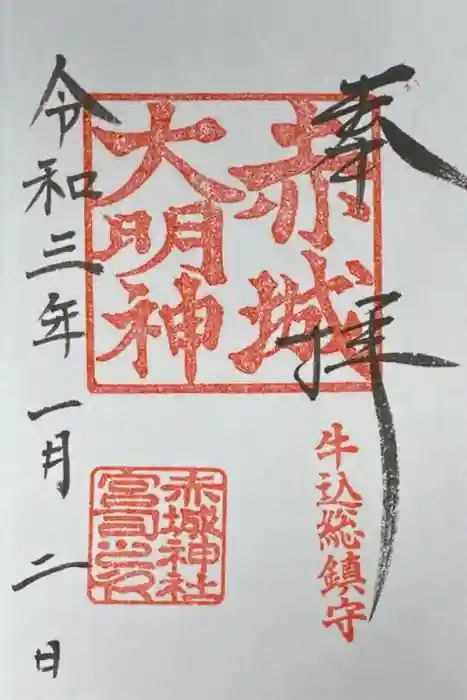 奉拝
牛込総鎮守
赤城
大明神
赤城神社
宮司之印
令和三年一月二日